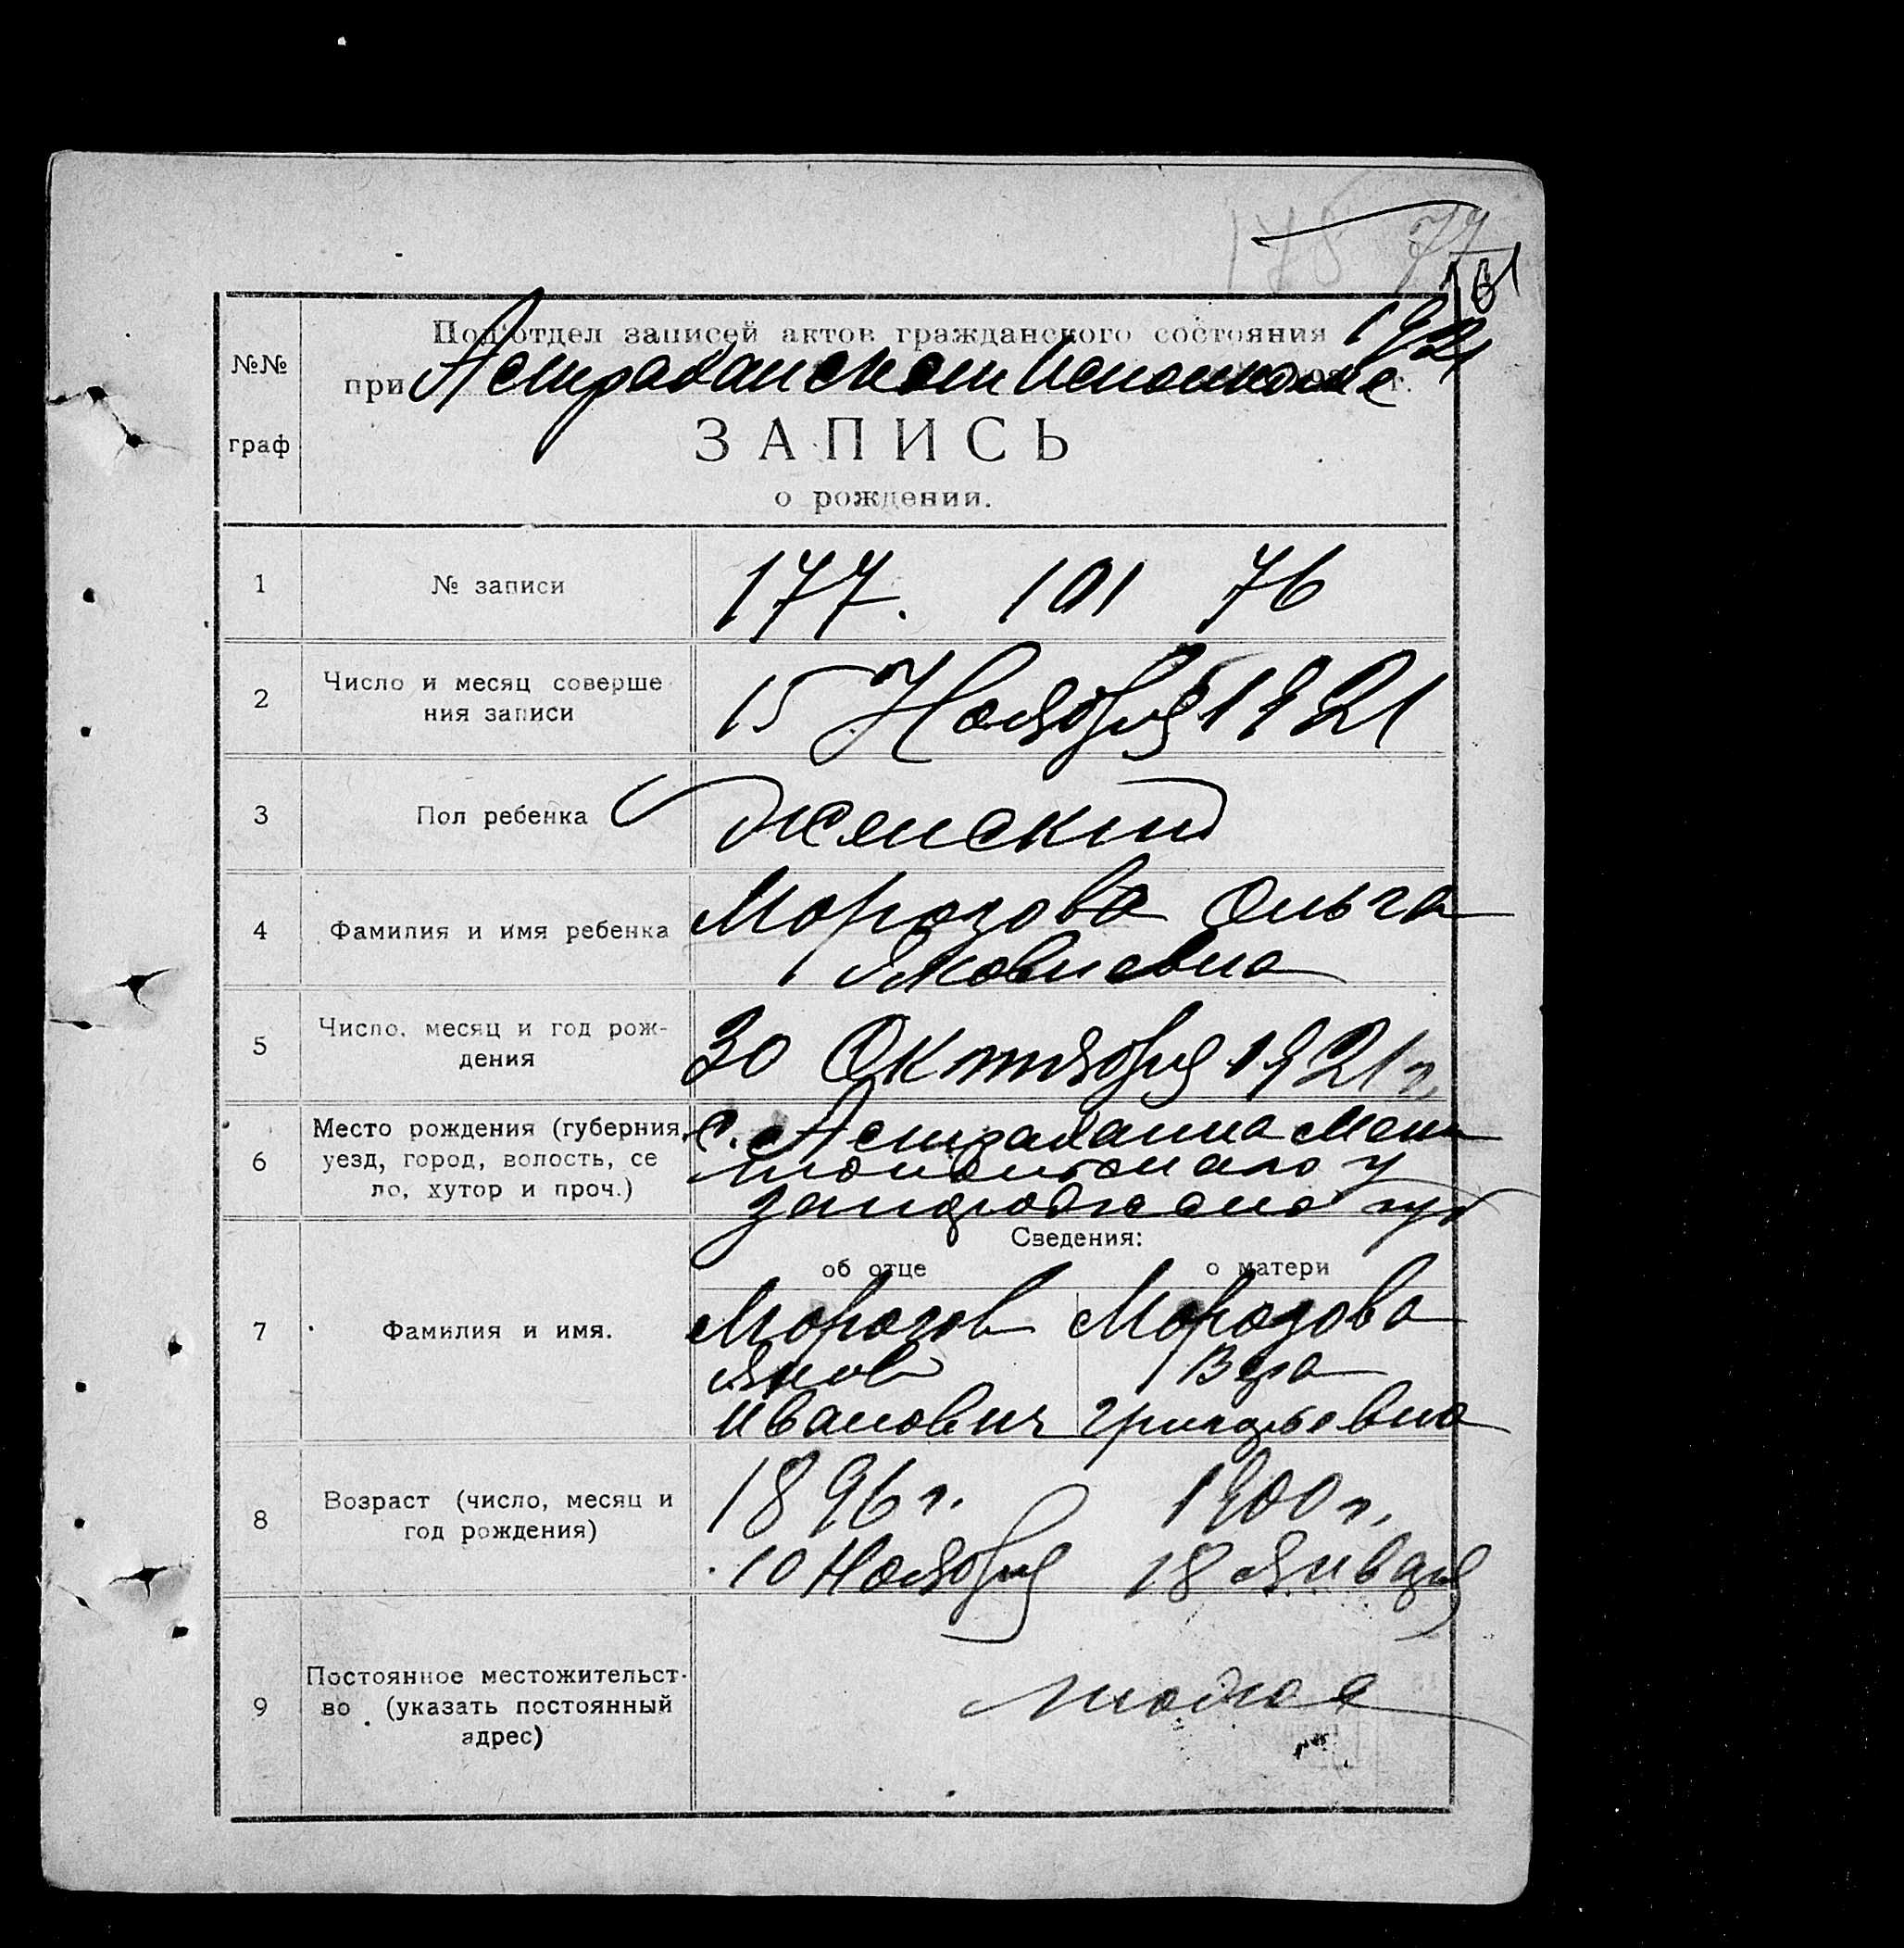 178 79
161
Под'отдел записей актов гражданского состояния 1921
при Астраханском Исполкоме г.
№№
граф
ЗАПИСЬ
о рождении.
1 № записи 177. 101 76
2 Число и месяц соверше
ния записи
15 Ноября 1921
3 Пол ребенка Женский
4 Фамилия и имя ребенка Морозова Ольга
Яковлевна
5 Число, месяц и год рож-
дения
30 Октября 1921 г.
6 Место рождения (губерния,
уезд, город, волость, се
ло, хутор и проч.)
С. Астраханка Мели
топольскаго у
запорожской губ
Сведения:
об отце о матери
7 Фамилия и имя.
Морозов Морозова
Яков Вера
Иванович Григорьевна
8 Возраст (число, месяц и
год рождения)
1896 г. 1900 г.
10 Ноября 18 Января
9 Постоянное местожительст-
во (указать постоянный
адрес)